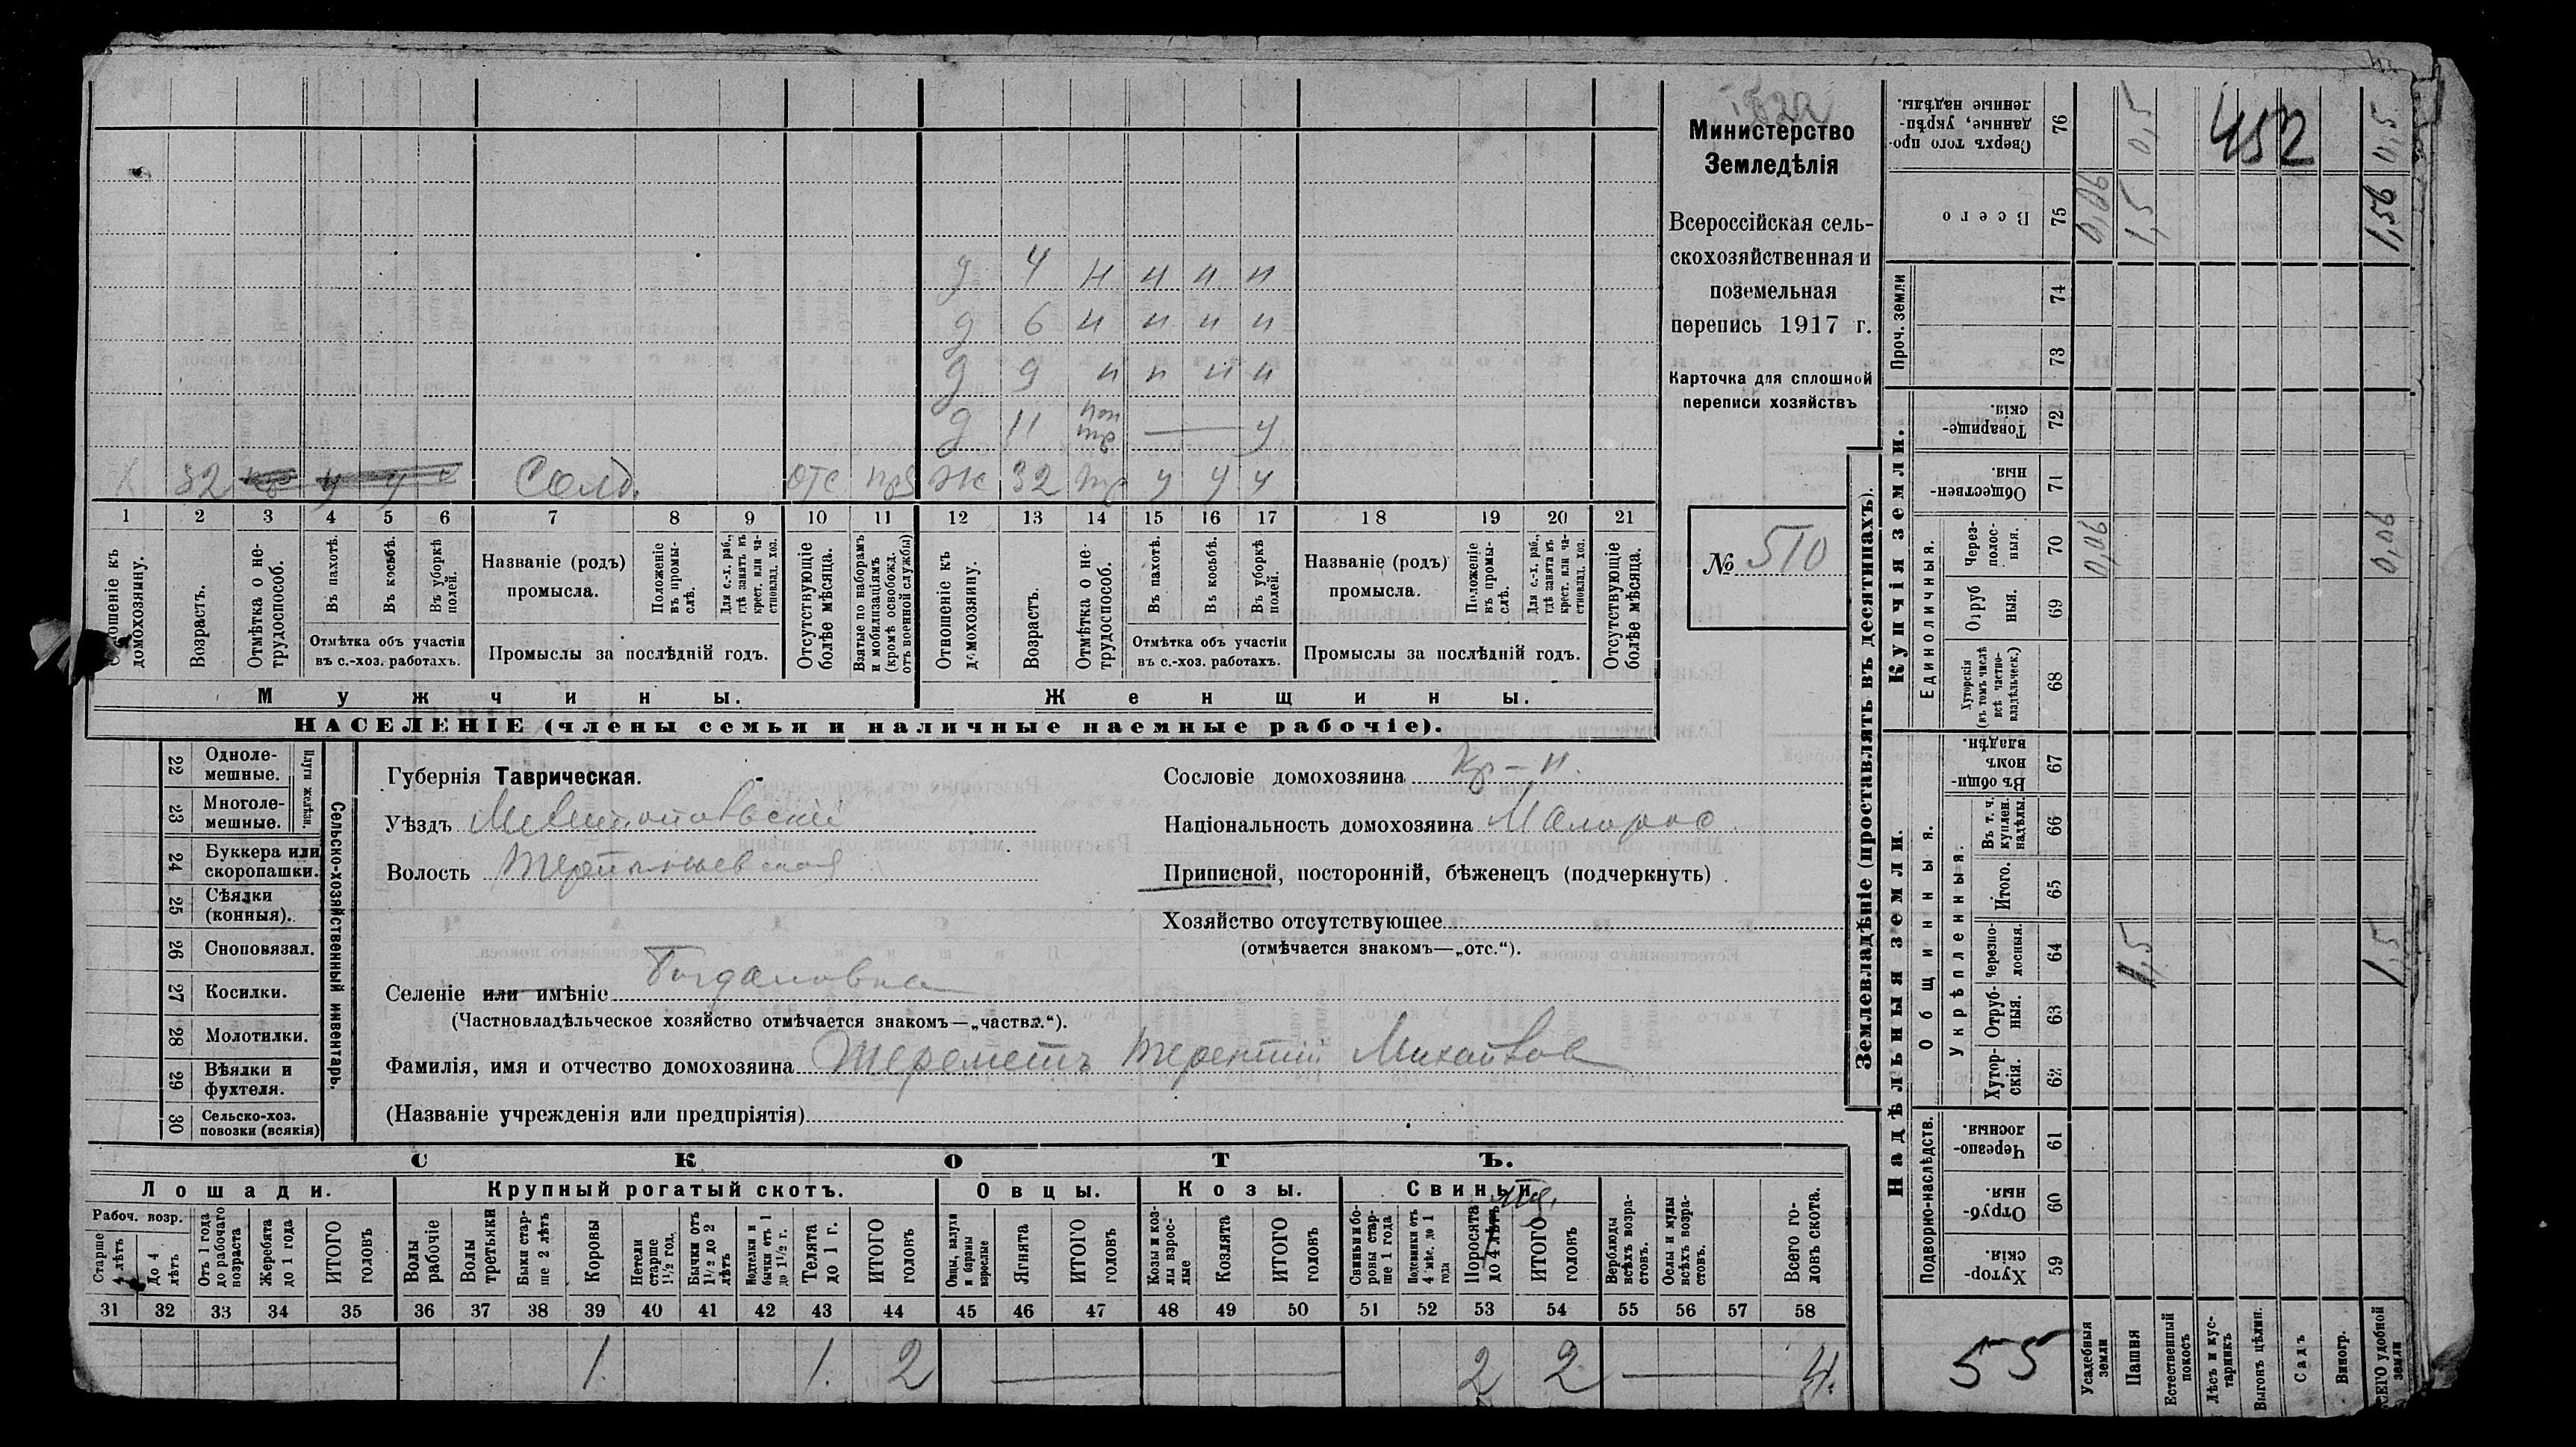 182а
Министерство
Земледѣлія
Всероссійская сель-
скохозяйственная и
поземельная
перепись 1917 г.
Карточка для сплошной
переписи хозяйствъ
№ 510
д 4 н н н н
д 6 н н н н
д 9 н н н н
д 11 пол тр — у
Х 32 Солд. отс жс 32 тр у у у
1 2 3 4 5 6 7 8 9 10 11 12 13 14 15 16 17 18 19 20 21
Отношеніе къ домохозяину.
Возрастъ.
Отмѣтка о не-трудоспособ.
Въ пахотѣ.
Въ косьбѣ.
Въ уборкѣ полей.
Отмѣтка объ участіи
въ с.-хоз. работахъ.
Названіе (родъ)
промысла.
Положеніе въ промы-слѣ.
Для с.-х. раб., гдѣ занятъ въ крест. или ча-стновлад. хоз.
Промыслы за послѣдній годъ.
Отсутствующіе болѣе мѣсяца.
Взятые по наборамъ и мобилизаціямъ (кромѣ освобожд. отъ военной службы)
Отношеніе къ домохозяину.
Возрастъ.
Отмѣтка о не-трудоспособ.
Въ пахотѣ.
Въ косьбѣ.
Въ уборкѣ полей.
Отмѣтка объ участіи
въ с.-хоз. работахъ.
Названіе (родъ)
промысла.
Положеніе въ промы-слѣ.
Для с.-х. раб., гдѣ занята въ крест. или ча-стновлад. хоз.
Промыслы за послѣдній годъ.
Отсутствующіе болѣе мѣсяца.
Мужчины.
Женщины.
НАСЕЛЕНІЕ (члены семьи и наличные наемные рабочіе).
Сельско-хозяйственный инвентарь.
Плуги желѣзн.
22 Одноле-мешные.
23 Многоле-мешные.
24 Буккера или скоропашки.
25 Сѣялки (конныя).
26 Сноповязал.
27 Косилки.
28 Молотилки.
29 Вѣялки и фухтеля.
30 Сельско-хоз. повозки (всякія)
Губернія Таврическая.
Уѣздъ Мелитопольскій
Волость Терпѣньевская
Сословіе домохозяина Кр-н.
Національность домохозяина Малорос
Приписной, посторонній, бѣженецъ (подчеркнуть)
Хозяйство отсутствующее
(отмѣчается знакомъ—„отс.“).
Селеніе или имѣніе Богдановка
(Частновладѣльческое хозяйство отмѣчается знакомъ—„частвл.“).
Фамилія, имя и отчество домохозяина Шереметъ Терентій Михайлов
(Названіе учрежденія или предпріятія)
СКОТЪ.
Лошади.
Крупный рогатый скотъ.
Овцы.
Козы.
Свиньи.
Рабоч. возр.
Старше 4 лѣтъ
До 4 лѣтъ
Отъ 1 года до рабочаго возраста
Жеребята до 1 года
ИТОГО головъ
Волы рабочіе
Волы третьяки
Быки стар-ше 2 лѣтъ
Коровы
Нетели старше 1½ год.
Бычки отъ 1½ до 2 лѣтъ
Подтелки и бычки отъ 1 до 1½ г.
Телята до 1 г.
ИТОГО головъ
Овцы, валухи и бараны взрослые
Ягнята
ИТОГО головъ
Козы и коз-лы взрос-лые
Козлята
ИТОГО головъ
Свиньи и бо-ровы стар-ше 1 года
Подсвинки отъ 4 мѣс. до 1 года
Поросята до 4 лѣтъ мѣс.
ИТОГО головъ
Верблюды всѣхъ возра-стовъ.
Ослы и мулы всѣхъ возра-стовъ.
Всего го-ловъ скота.
31 32 33 34 35 36 37 38 39 40 41 42 43 44 45 46 47 48 49 50 51 52 53 54 55 56 57 58
1. 1. 2 2 2 4.
Землевладѣніе (проставлять въ десятинахъ).
Надѣльныя земли.
Купчія земли.
Проч. земли
Подворно-наслѣдств.
Общинныя.
Укрѣпленныя.
Единоличныя.
Сверхъ того про-данные, укрѣп-ленные надѣлы. 76
Всего 75
74
73
Товарище-скія. 72
Обществен-ныя. 71
Через-полос-ныя. 70
Отруб ныя. 69
Хуторскія (въ томъ числѣ всѣ частно-владѣльческ.) 68
Въ общин-номъ владѣн. 67
Въ т. ч. куплен. надѣлы. 66
Итого. 65
Черезпо-лосныя. 64
Отруб-ныя. 63
Хутор-скія. 62
Черезпо-лосныя. 61
Отруб-ныя. 60
Хутор-скія. 59
Усадебныя земли
Пашня
Естественный покосъ
Лѣсъ и кус-тарникъ
Выгонъ цѣлин.
Садъ
Виногр.
ВСЕГО удобной земли
0,5 452 0,5
0,06 1,5 1,56
0,06 0,06
1,5 1,5
55